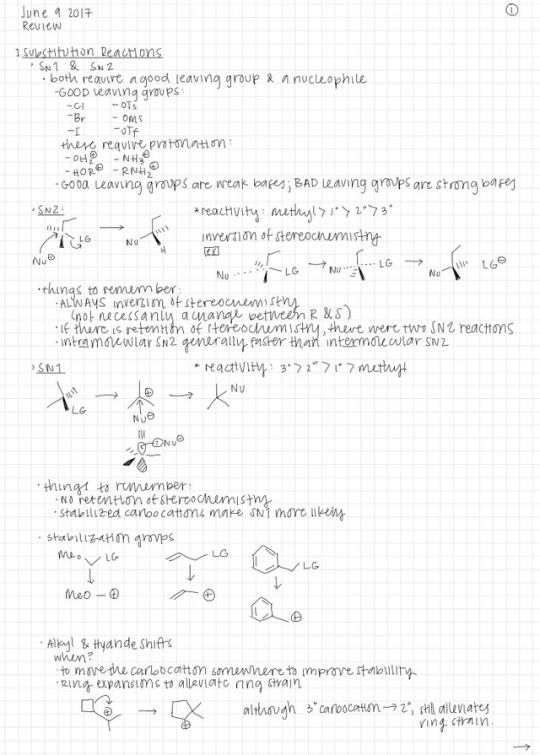 June 9 2017
①
Review
I Substitution Reactions
› SN1 & SN2
• both require a good leaving group & a nucleophile
-GOOD leaving groups:
-Cl -OTs
-Br -OMs
-I -OTf
these require protonation:
-OH₂⊕ -NH₃⊕
-HOR⊕ -RNH₂⊕
-Good leaving groups are weak bases; BAD leaving groups are strong bases
› SN2:
*reactivity: methyl > 1° > 2° > 3°
LG
Nu⊖
Nu
H
inversion of stereochemistry
ex
Nu LG
Nu LG
Nu LG⊖
• things to remember:
• ALWAYS inversion of stereochemistry
(not necessarily a change between R & S)
• if there is retention of stereochemistry, there were two SN2 reactions
• intramolecular SN2 generally faster than intermolecular SN2
› SN1
* reactivity: 3° > 2° > 1° > methyl
LG
⊕
Nu⊖
Nu
Nu⊖
• things to remember:
• NO retention of stereochemistry
• stabilized carbocations make SN1 more likely
• stabilization groups
MeO LG
LG
LG
MeO -⊕
⊕
⊕
• Alkyl & Hydride shifts
when?
• to move the carbocation somewhere to improve stability
• Ring expansions to alleviate ring strain
⊕
⊕
although 3° carbocation → 2°, still alleviates
ring strain.
→